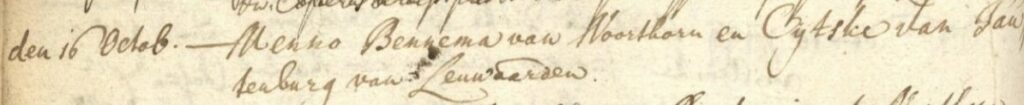 den 16 Octob. — Menno Bennema van Noorthorn en Cytske van Jan
tenburg van Leeuwaarden.